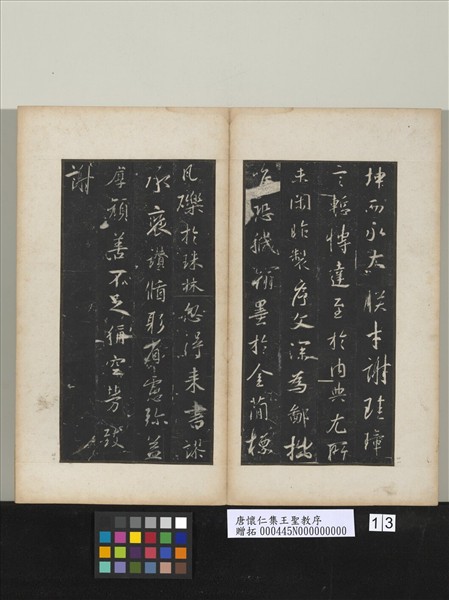 坤而永大朕才謝珪璋
言慚博達至於内典尤所
未閑昨製序文深為鄙拙
唯恐穢翰墨於金簡標
瓦礫於珠林忽得來書謬
承褒讚循躬省慮弥益
厚顏善不足稱空勞致
謝
唐懷仁集王聖教序
贈拓 000445N000000000
13